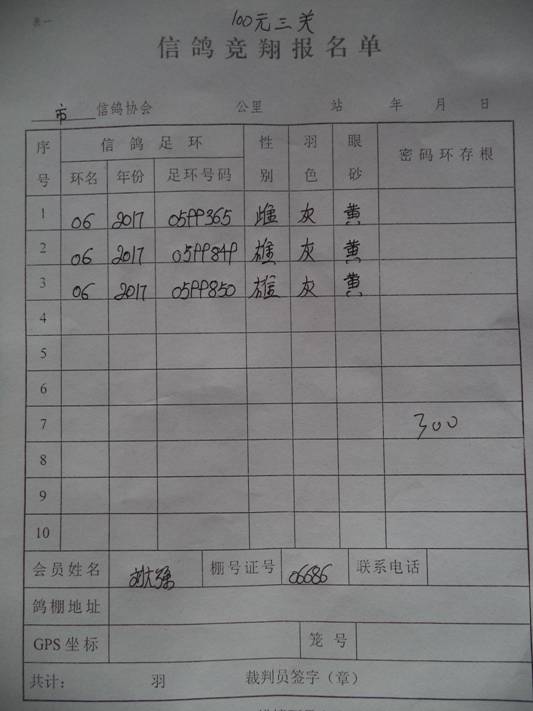 表一
100元三关
信鸽竞翔报名单
市 信鸽协会 公里 站 年 月 日
序号 信鸽足环 性别 羽色 眼砂 密码环存根
环名 年份 足环号码
1 06 2017 0599365 雌 灰 黄
2 06 2017 0599849 雄 灰 黄
3 06 2017 0599850 雄 灰 黄
4
5
6
7 300
8
9
10
会员姓名 刘大强 棚号证号 06686 联系电话
鸽棚地址
GPS坐标 笼号
共计： 羽 裁判员签字（章）